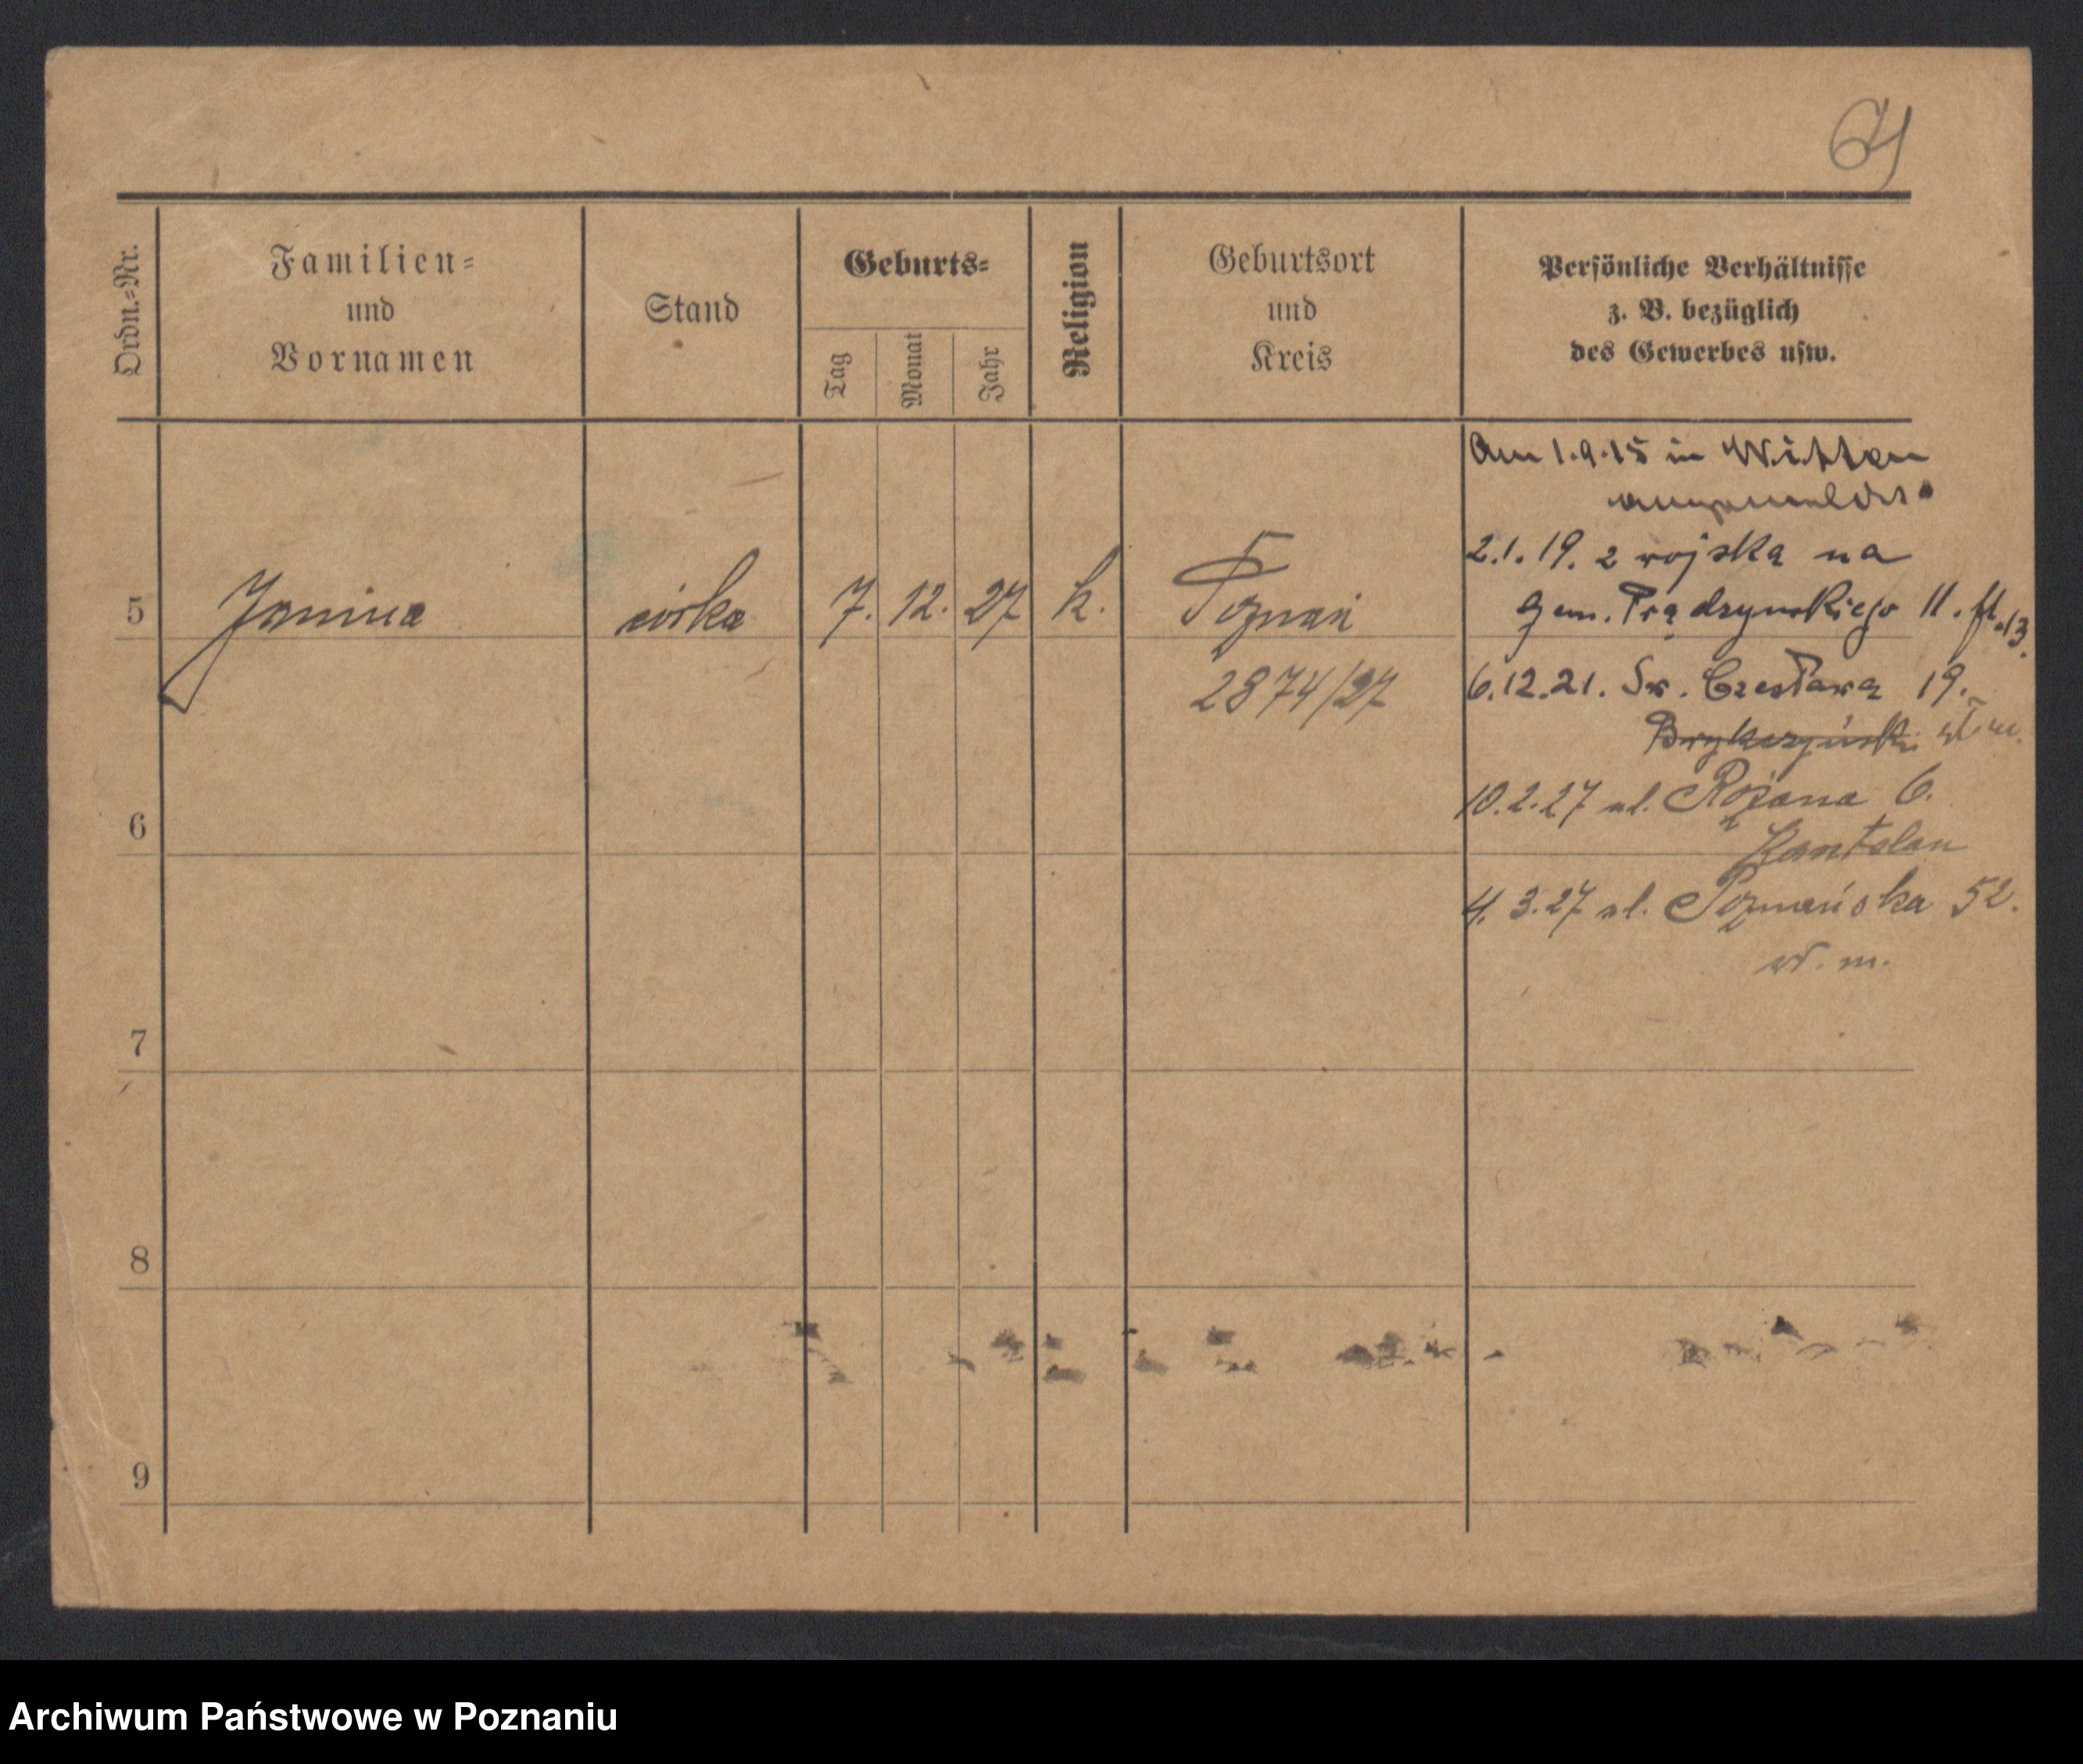 71
Ordn.-Nr.
Familien-
und
Vornamen
Stand
Geburts-
Tag
Monat
Jahr
Religion
Geburtsort
und
Kreis
Persönliche Verhältnisse
z. B. bezüglich
des Gewerbes usw.
Am 1.9.15 in Witten
angemeldet.
2.1.19. z wojska na
Gen. Prądzyńskiego 11. ptr. 13.
5 Janina córka 7. 12. 27 k. Poznań
2874/27
6.12.21. Św. Czesława 19.
Brykczyński w. m.
10.2.27 ul. Różana 6.
6
Kantolan
4. 3.27 ul. Poznańska 52.
w. m.
7
8
9
Archiwum Państwowe w Poznaniu